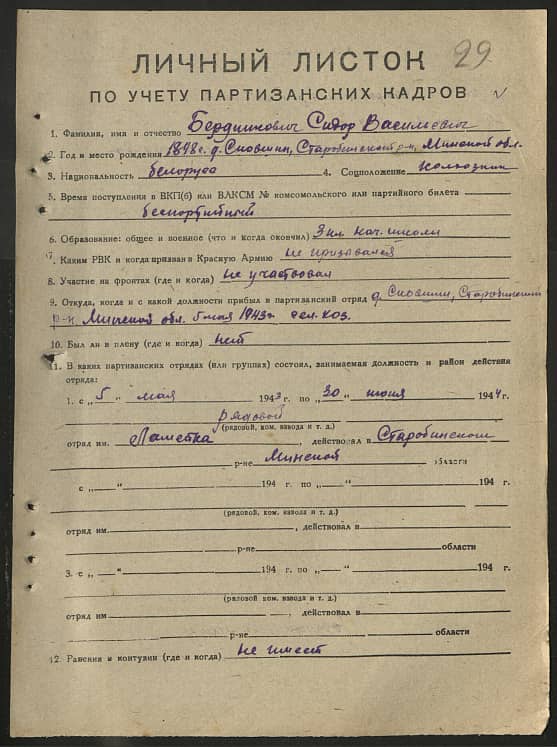 29
ЛИЧНЫЙ ЛИСТОК
ПО УЧЕТУ ПАРТИЗАНСКИХ КАДРОВ
1. Фамилия, имя и отчество Бердникович Сидор Васильевич
2. Год и место рождения 1898 г. д. Сковшин, Старобинский р-н, Минской обл.
3. Национальность белорус 4. Соцположение колхозник
5. Время поступления в ВКП(б) или ВЛКСМ № комсомольского или партийного билета
беспартийный
6. Образование: общее и военное (что и когда окончил) 3 кл. нач. школы
7. Каким РВК и когда призван в Красную Армию не призывался
8. Участие на фронтах (где и когда) не участвовал
9. Откуда, когда и с какой должности прибыл в партизанский отряд д. Сковшин, Старобинский
р-н Минской обл. 5 мая 1943 г. сел. хоз.
10. Был ли в плену (где и когда) нет
11. В каких партизанских отрядах (или группах) состоял, занимаемая должность и район действия
отряда:
1. с „ 5 “ мая 1943 г. по „ 30 “ июня 1944 г.
рядовой
(рядовой, ком. взвода и т. д.)
отряд им. , действовал в Старобинском
р-не Минской области
с „ “ 194 г. по „ “ 194 г.
(рядовой, ком. взвода и т. д.)
отряд им , действовал в
р-не области
3. с „ “ 194 г. по „ “ 194 г.
(рядовой, ком. взвода и т. д.)
отряд им , действовал в
р-не области
12. Ранения и контузии (где и когда) не имеет